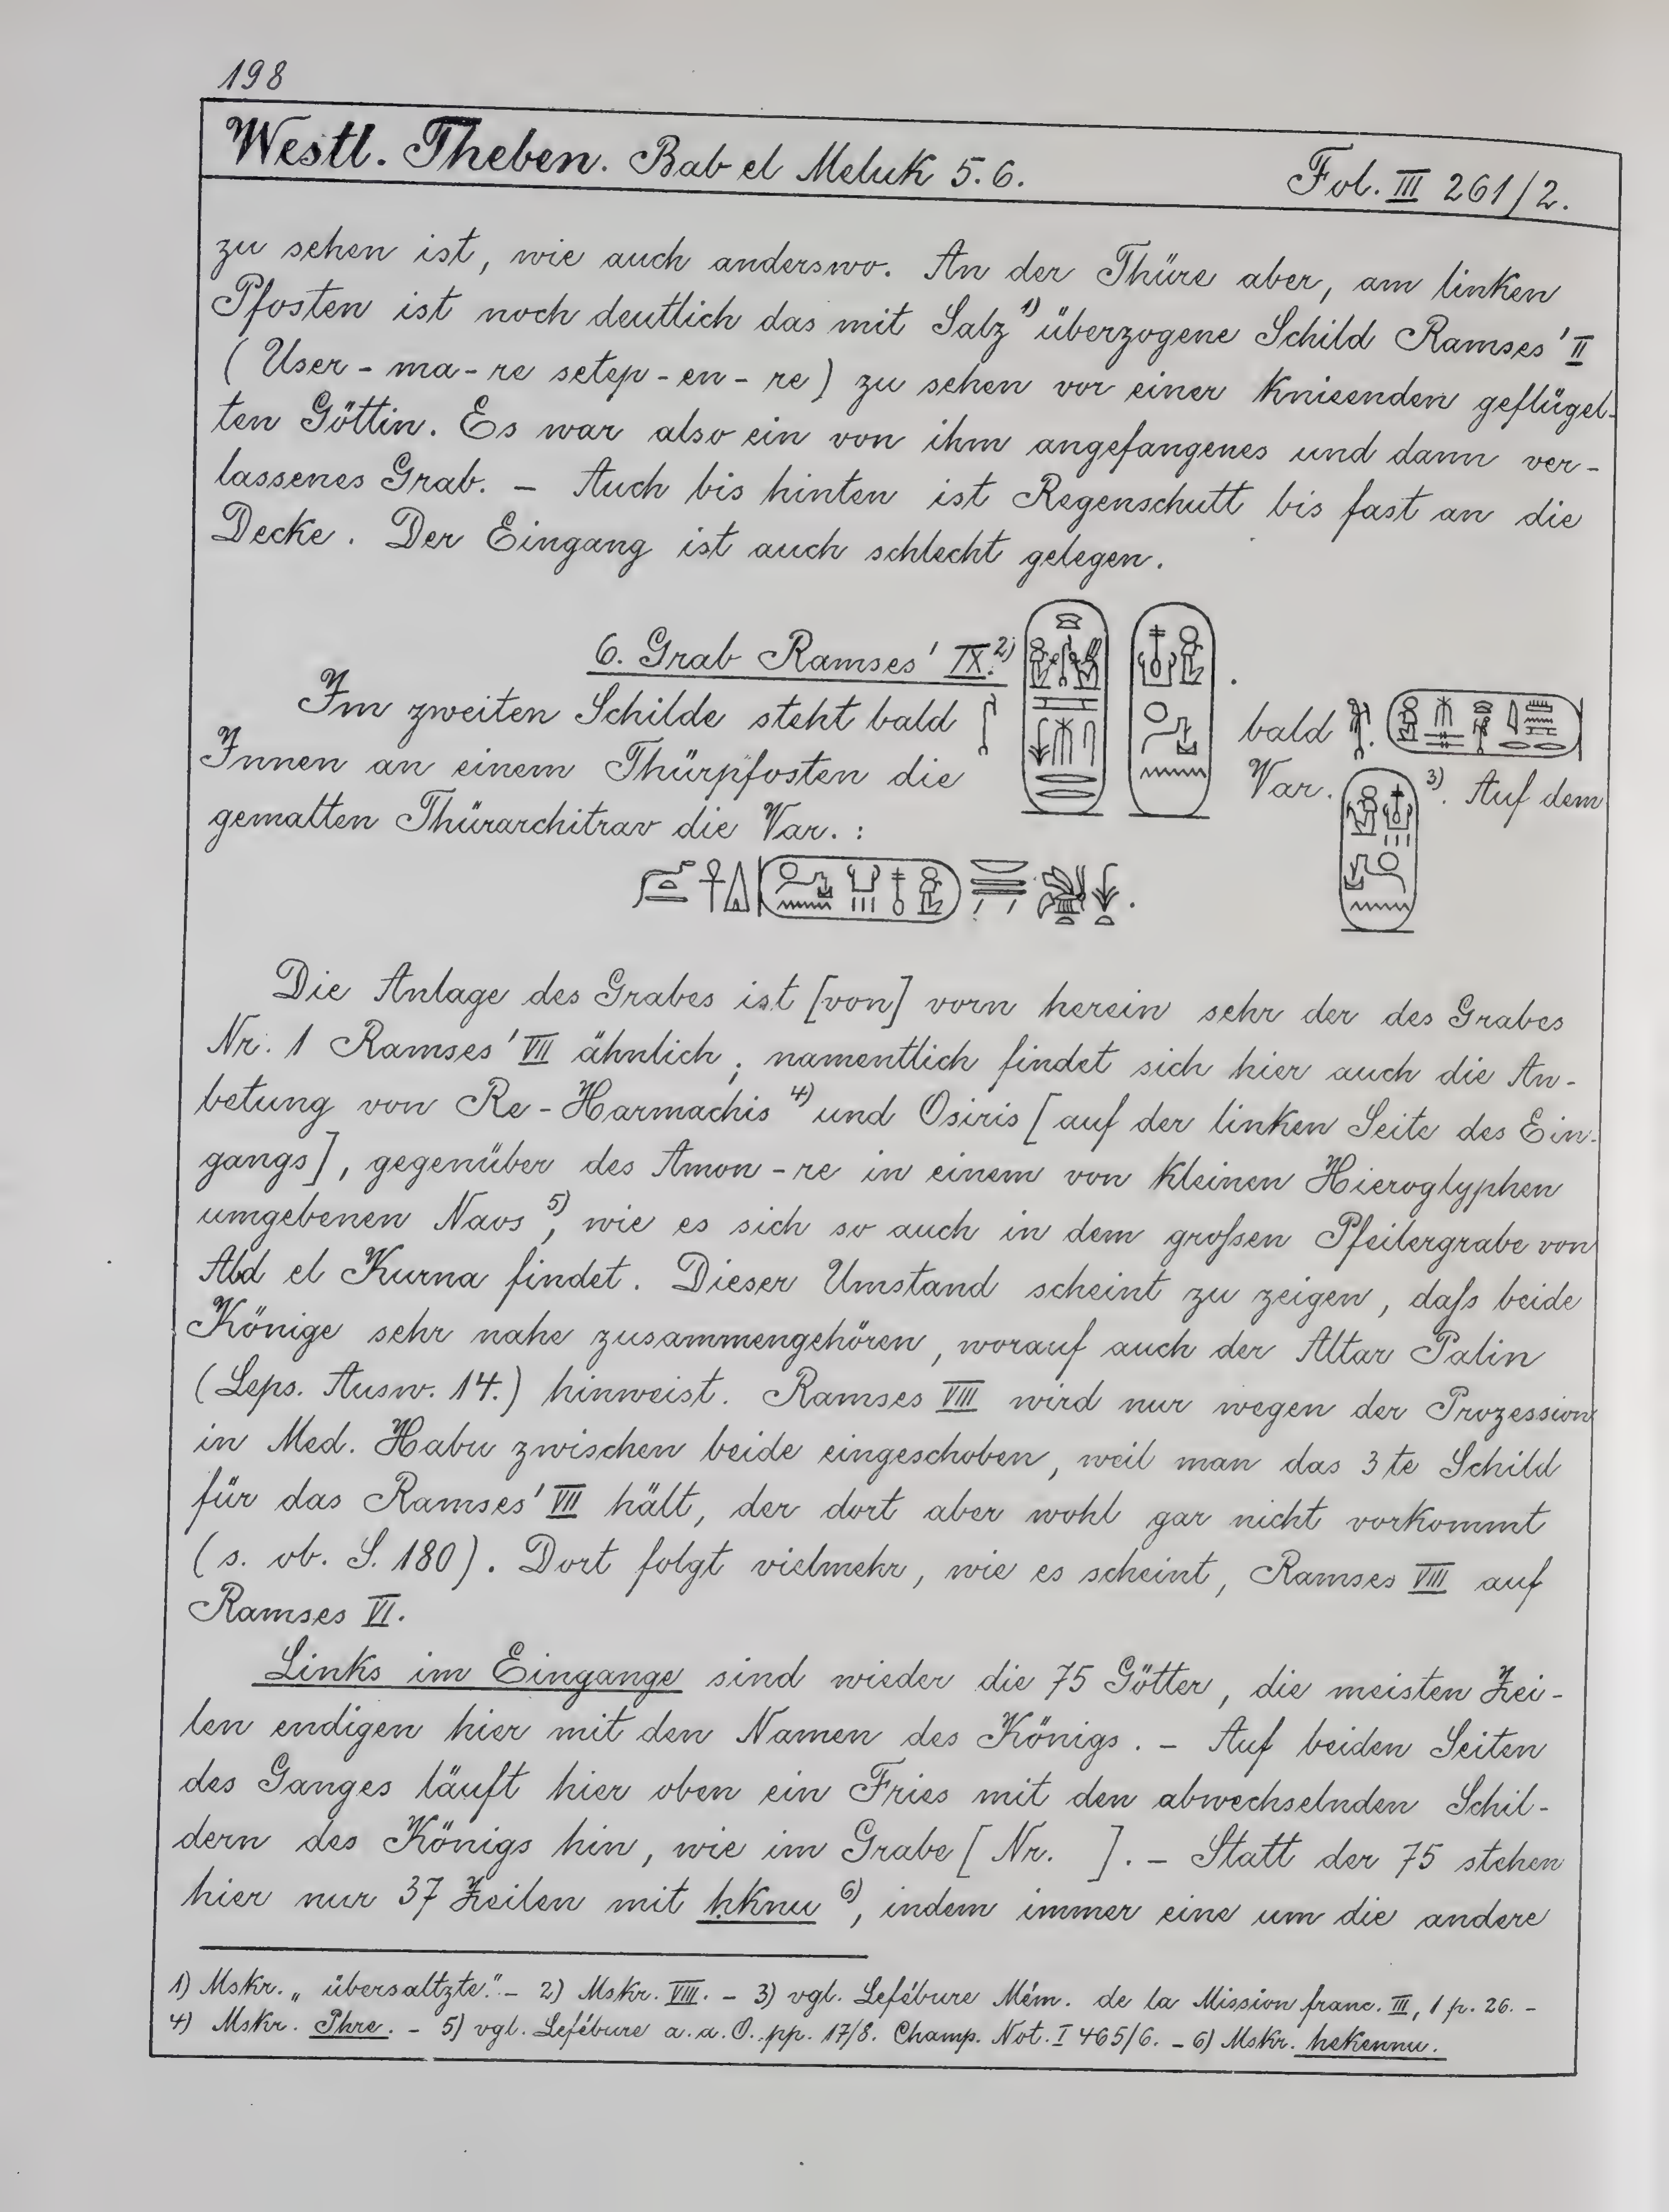 198
Westl. Theben. Bab el Meluk 5.6. Fol. III 261/2.
zu sehen ist, wie auch anderswo. An der Thüre aber, am linken
Pfosten ist noch deutlich das mit Salz 1) überzogene Schild Ramses' II
(User-ma-re setep-en-re) zu sehen vor einer knieenden geflügel-
ten Göttin. Es war also ein von ihm angefangenes und dann ver-
lassenes Grab. – Auch bis hinten ist Regenschutt bis fast an die
Decke. Der Eingang ist auch schlecht gelegen.
6. Grab Ramses' IX. 2)
Im zweiten Schilde steht bald bald
Innen an einem Thürpfosten die Var. 3). Auf dem
gemalten Thürarchitrav die Var. :
Die Anlage des Grabes ist [von] vorn herein sehr der des Grabes
Nr. 1 Ramses' VII ähnlich; namentlich findet sich hier auch die An-
betung von Re-Harmachis 4) und Osiris [auf der linken Seite des Ein-
gangs], gegenüber des Amon-re in einem von kleinen Hieroglyphen
umgebenen Naos 5), wie es sich so auch in dem großen Pfeilergrabe von
Abd el Kurna findet. Dieser Umstand scheint zu zeigen, daß beide
Könige sehr nahe zusammengehören, worauf auch der Altar Palin
(Leps. Ausw. 14.) hinweist. Ramses VIII wird nur wegen der Prozession
in Med. Habu zwischen beide eingeschoben, weil man das 3te Schild
für das Ramses' VII hält, der dort aber wohl gar nicht vorkommt
(s. ob. S. 180). Dort folgt vielmehr, wie es scheint, Ramses VIII auf
Ramses VI.
Links im Eingange sind wieder die 75 Götter, die meisten Zei-
len endigen hier mit den Namen des Königs. – Auf beiden Seiten
des Ganges läuft hier oben ein Fries mit den abwechselnden Schil-
dern des Königs hin, wie im Grabe [Nr. ]. – Statt der 75 stehen
hier nur 37 Zeilen mit ḥknu 6), indem immer eine um die andere
1) Mskr. „übersaltzte". – 2) Mskr. VIII. – 3) vgl. Lefébure Mém. de la Mission franc. III, 1 p. 26. –
4) Mskr. Phre. – 5) vgl. Lefébure a. a. O. pp. 17/8. Champ. Not. I 465/6. – 6) Mskr. hekennu.